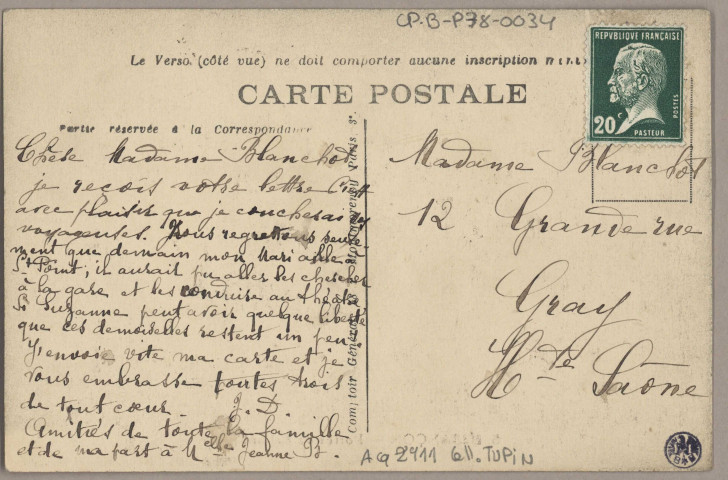 CP-B-P78-0034
Le Verso (côté vue) ne doit comporter aucune inscription
CARTE POSTALE
REPVBLIQVE FRANÇAISE
20 c
POSTES
PASTEUR
Partie réservée à la Correspondance
Chère Madame Blanchot
je reçois votre lettre C'est
avec plaisir que je coucherai
voyageuses. Nous regrettons seule-
ment que demain mon mari aille à
St Point, il aurait pu aller les chercher
à la gare et les conduire au théâtre
Si Suzanne peut avoir quelque liberté
que ces demoiselles restent un peu
J'envoie vite ma carte et je
vous embrasse toutes trois
de tout cœur. J. D.
Amitiés de toute la famille
et de ma part à Melle Jeanne B.
Comptoir Général Paris 3e
Madame Blanchot
12 Grande rue
Gray
Hte Saône
Aq 2911 Coll. TUPIN